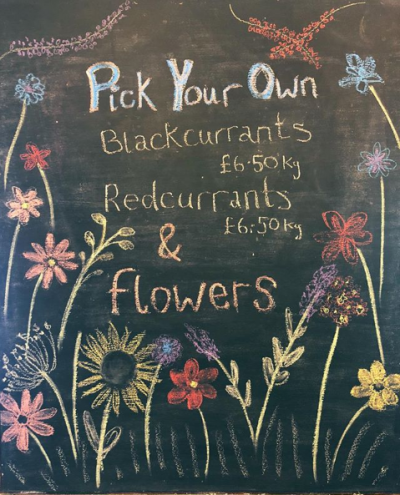 Pick Your Own
Blackcurrants
£6.50kg
Redcurrants
£6.50kg
&
flowers